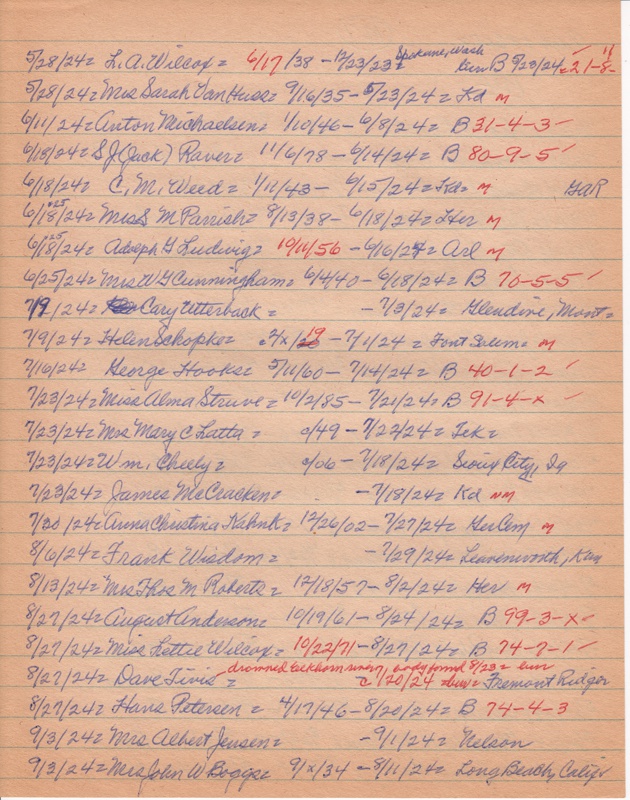 5/28/24= L.A. Wilcox= 6/17/38 - 12/23/23= Spokane, Wash Bur B 5/23/24=21-8-11 ✓
5/28/24= Mrs Sarah Van Huss= 9/16/35 - 5/23/24= Kd m
6/11/24= Anton Michaelsen= 1/10/46 - 6/8/24= B 31-4-3 ✓
6/18/24= S J (Jack) Raver= 11/6/78 - 6/14/24= B 80-9-5 ✓
6/18/24= C, M, Weed= 1/11/43 - 6/15/24= Kd= m GAR
6/18/24= 25 Miss M Parrish= 8/13/38 - 6/18/24= Her m
6/18/24= 25 Adolph G Ludwig= 10/11/56 - 6/16/24= Arl m
6/25/24= Mrs W G Cunningham= 6/4/40 - 6/18/24= B 70-5-5 ✓
7/9/24= Cary Utterback= - 7/3/24= Glendive, Mont=
7/9/24= Helen Schopke= 4/x/19 - 7/1/24= Font Salem= m
7/16/24= George Hooks= 5/11/60 - 7/14/24= B 40-1-2 ✓
7/23/24= Miss Alma Struve= 10/2/85 - 7/21/24= B 91-4-x ✓
7/23/24= Mrs Mary C Latta= c/49 - 7/22/24= Tek=
7/23/24= Wm, Cheely= c/06 - 7/18/24= Sioux City, Ia
7/23/24= James McCracken= - 7/18/24= Kd nm
7/30/24= Anna Christina Kahnk= 12/26/02 - 7/27/24= Her Cem m
8/6/24= Frank Wisdom= - 7/29/24= Leavenworth, Kan
8/13/24= Mrs Thos M Roberts= 12/18/57 - 8/2/24= Her m
8/27/24= August Anderson= 10/19/61 - 8/24/24= B 99-3-x ✓
8/27/24= Miss Lettie Wilcox= 10/22/71 - 8/27/24= B 74-7-1 ✓
drowned Elkhorn river, body found 8/23= bur
8/27/24= Dave Tivis= - c 1/20/24 =bur= Fremont Ridge
8/27/24= Hans Petersen= 4/17/46 - 8/20/24= B 74-4-3
9/3/24= Mrs Albert Jensen= - 9/1/24= Nelson
9/3/24= Mrs John W Boggs= 9/x/34 - 8/11/24= Long Beach, Calif